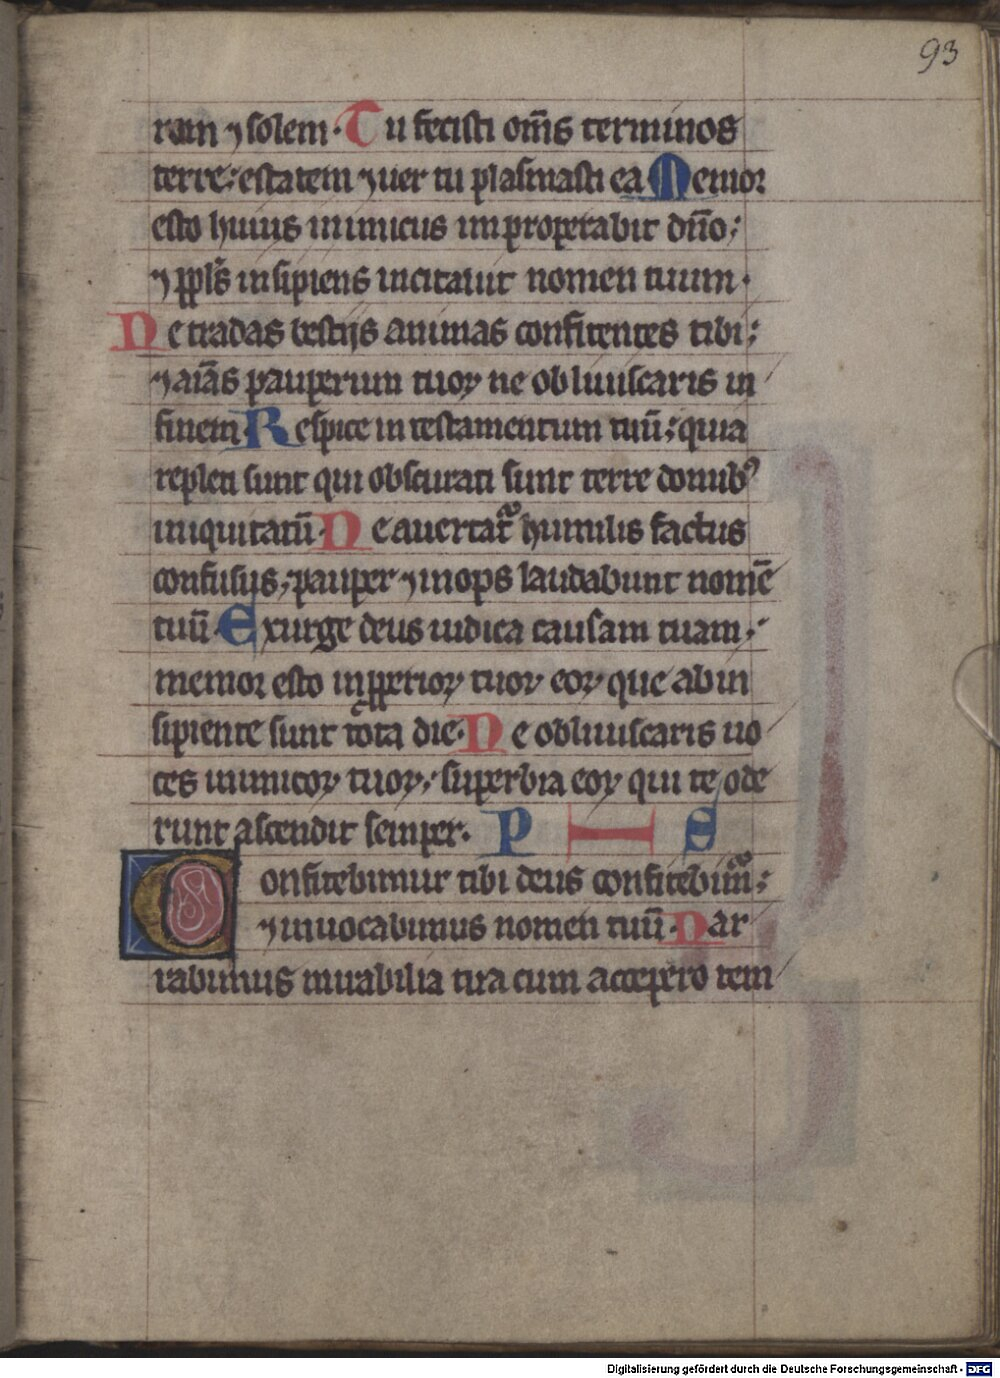 93
ram ⁊ solem. Tu fecisti om̄s terminos
terre: estatem ⁊ uer tu plasmasti ea Memor
esto huius inimicus improperabit dn̄o;
⁊ ppl̄s insipiens incitauit nomen tuum.
Ne tradas bestijs animas confitentes tibi;
⁊ aīas pauperum tuoꝝ ne obliuiscaris in
finem. Respice in testamentum tuū; quia
repleti sunt qui obscurati sunt terre domibꝰ
iniquitatū. Ne auertat᷑ humilis factus
confusus; pauper ⁊ inops laudabunt nomē
tuū. Exurge deus iudica causam tuam;
memor esto inpperioꝝ tuoꝝ eoꝝ que ab in
sipiente sunt tota die. Ne obliuiscaris uo
ces inimicoꝝ tuoꝝ; superbia eoꝝ qui te ode
runt ascendit semper. P I S
Confitebimur tibi deus confitebim᷑;
⁊ inuocabimus nomen tuū. Nar
rabimus mirabilia tua cum accepero tem
Digitalisierung gefördert durch die Deutsche Forschungsgemeinschaft - DFG